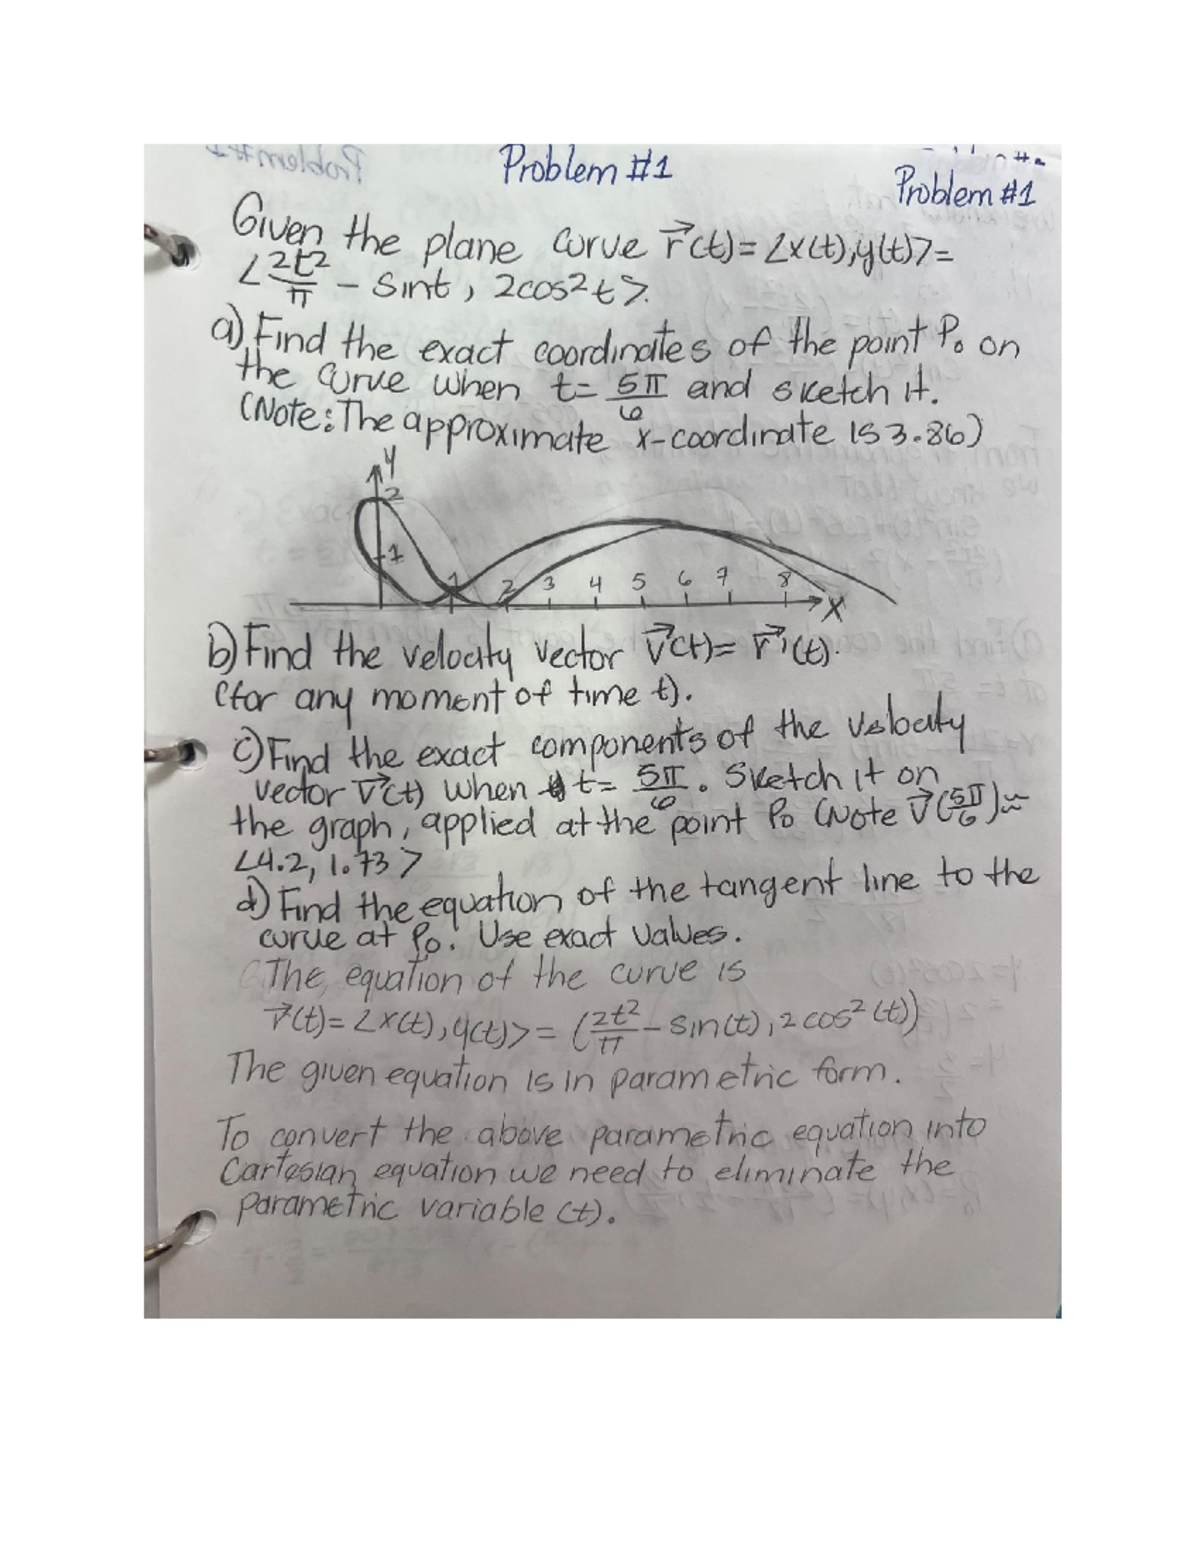 Problem #1
Problem #1
Given the plane curve r⃗(t)= <x(t),y(t)>=
<2t²/π - sint, 2cos²t>.
a) Find the exact coordinates of the point P₀ on
the curve when t= 5π/6 and sketch it.
(Note: The approximate x-coordinate is 3.86)
y
2
1
1 2 3 4 5 6 7 8
x
b) Find the velocity vector v⃗(t)= r⃗'(t).
(for any moment of time t).
c) Find the exact components of the velocity
vector v⃗(t) when t= 5π/6. Sketch it on
the graph, applied at the point P₀ (Note v⃗(5π/6)≈
<4.2, 1.73>
d) Find the equation of the tangent line to the
curve at P₀. Use exact values.
The equation of the curve is
r⃗(t)= <x(t),y(t)> = (2t²/π - sin(t), 2cos²(t))
The given equation is in parametric form.
To convert the above parametric equation into
Cartesian equation we need to eliminate the
parametric variable (t).